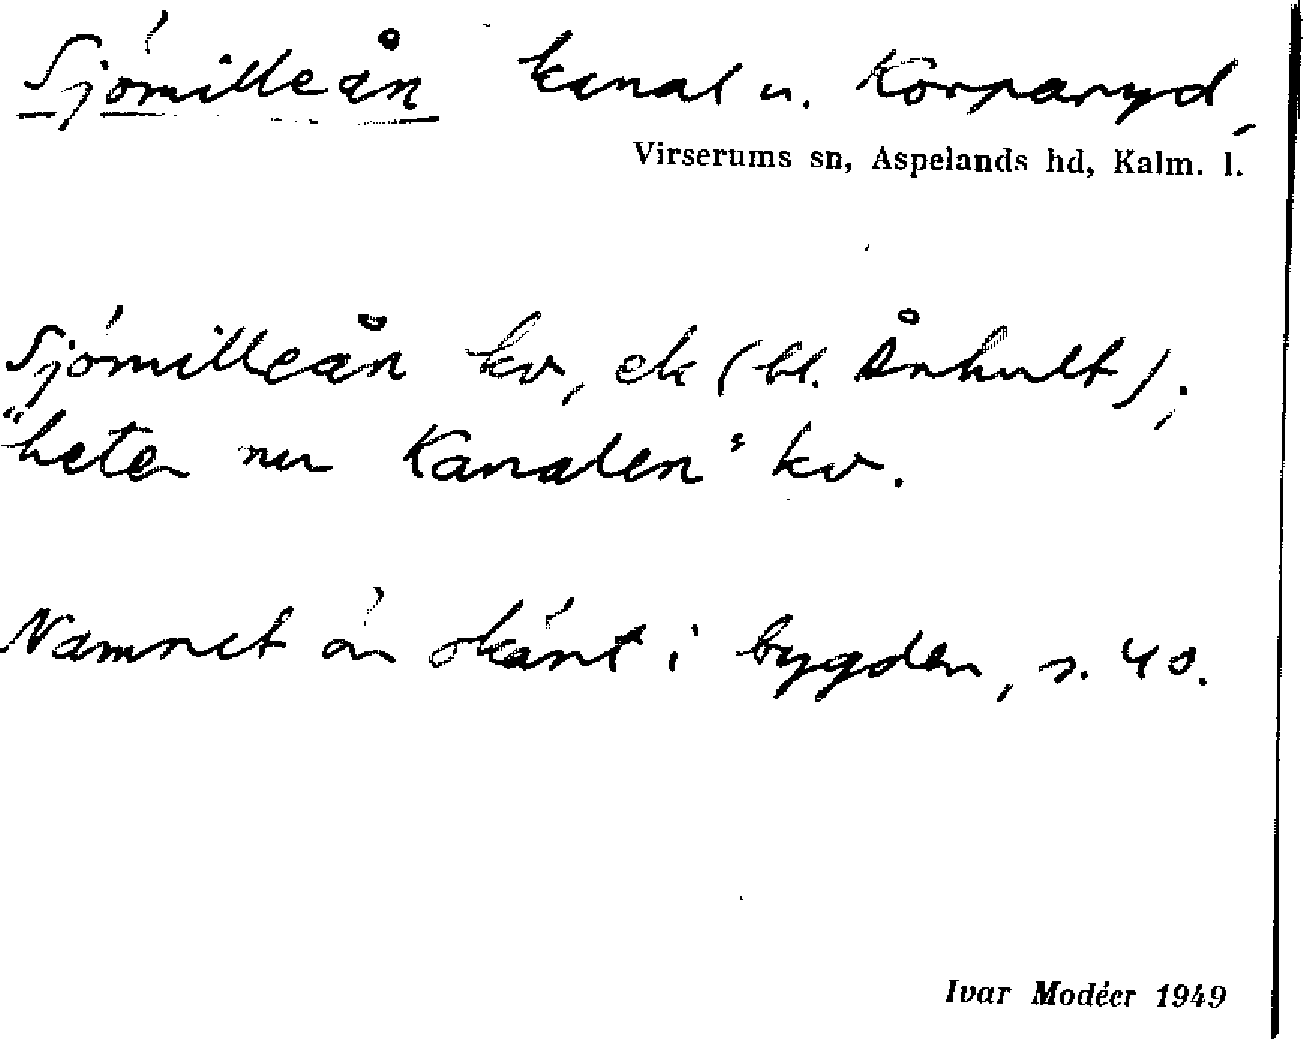 Sjömilleån kanal u. Korparyd,
Virserums sn, Aspelands hd, Kalm. l.
Sjömilleån kv, ek (bl. Ånhult);
"heter nu Kanalen" kv.
Namnet är okänt i bygden, s. 40.
Ivar Modéer 1949